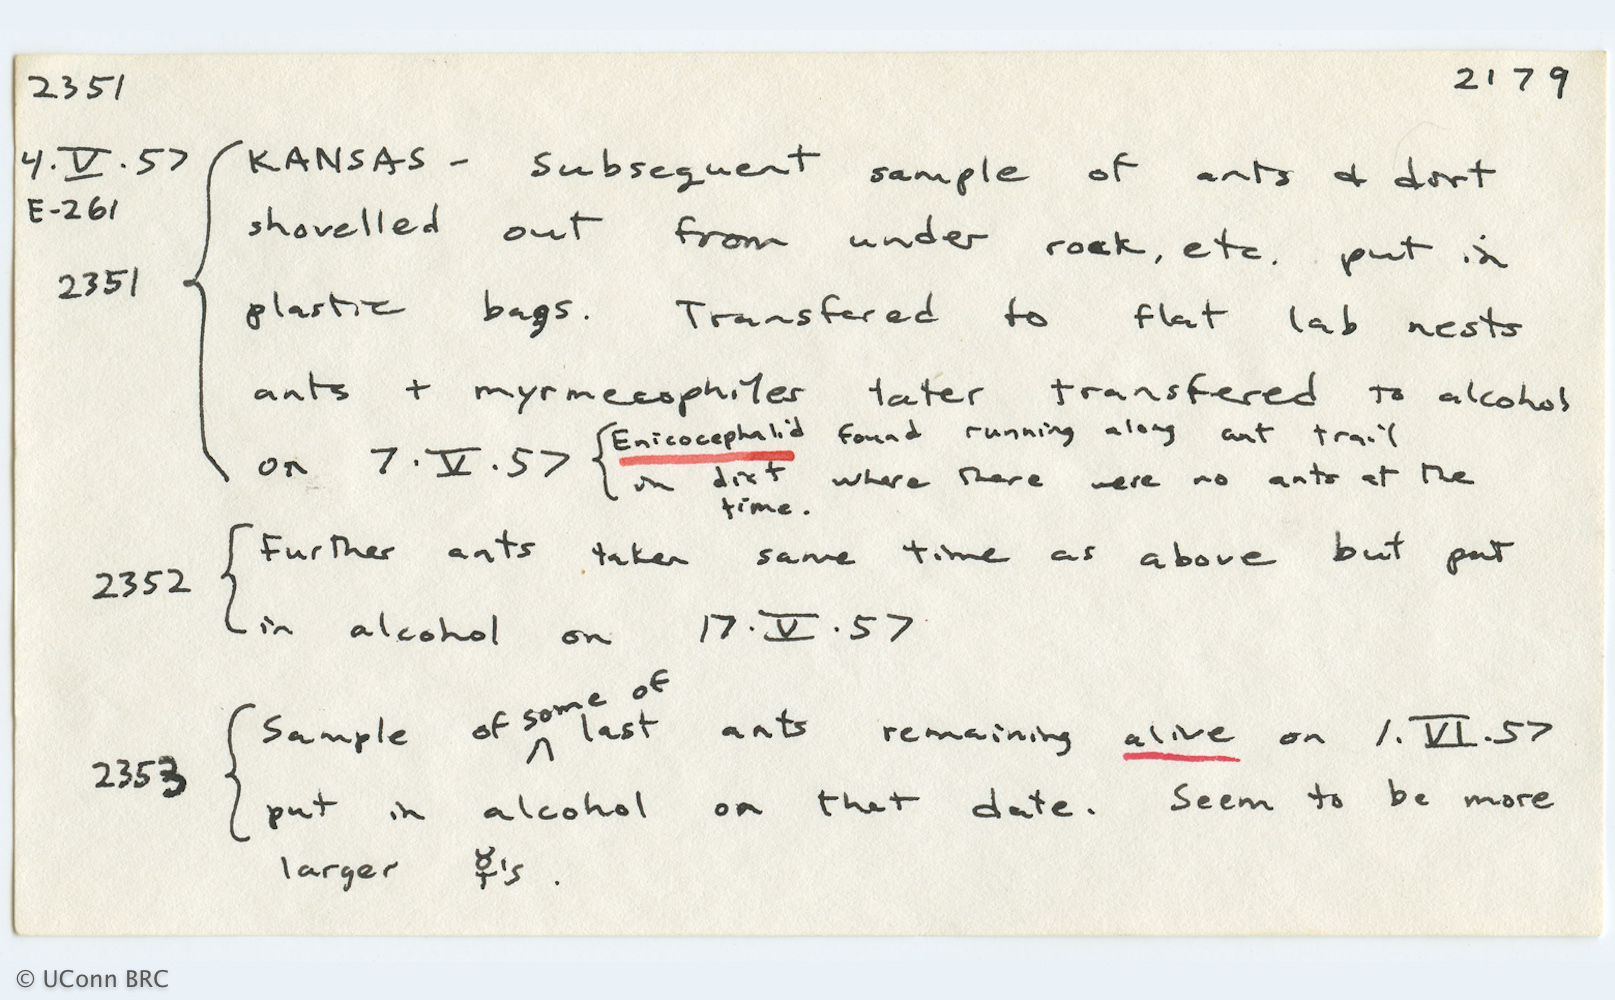 2351 2179
4.V.57 KANSAS - Subsequent sample of ants & dirt
E-261 shovelled out from under rock, etc. put in
2351 plastic bags. Transfered to flat lab nests
ants + myrmecophiles later transfered to alcohol
on 7.V.57 Enicocephalid found running along ant trail
in dirt where there were no ants at the
time.
Further ants taken same time as above but put
2352
in alcohol on 17.V.57
Sample of some of last ants remaining alive on 1.VI.57
2353
put in alcohol on that date. Seem to be more
larger ☿'s.
© UConn BRC